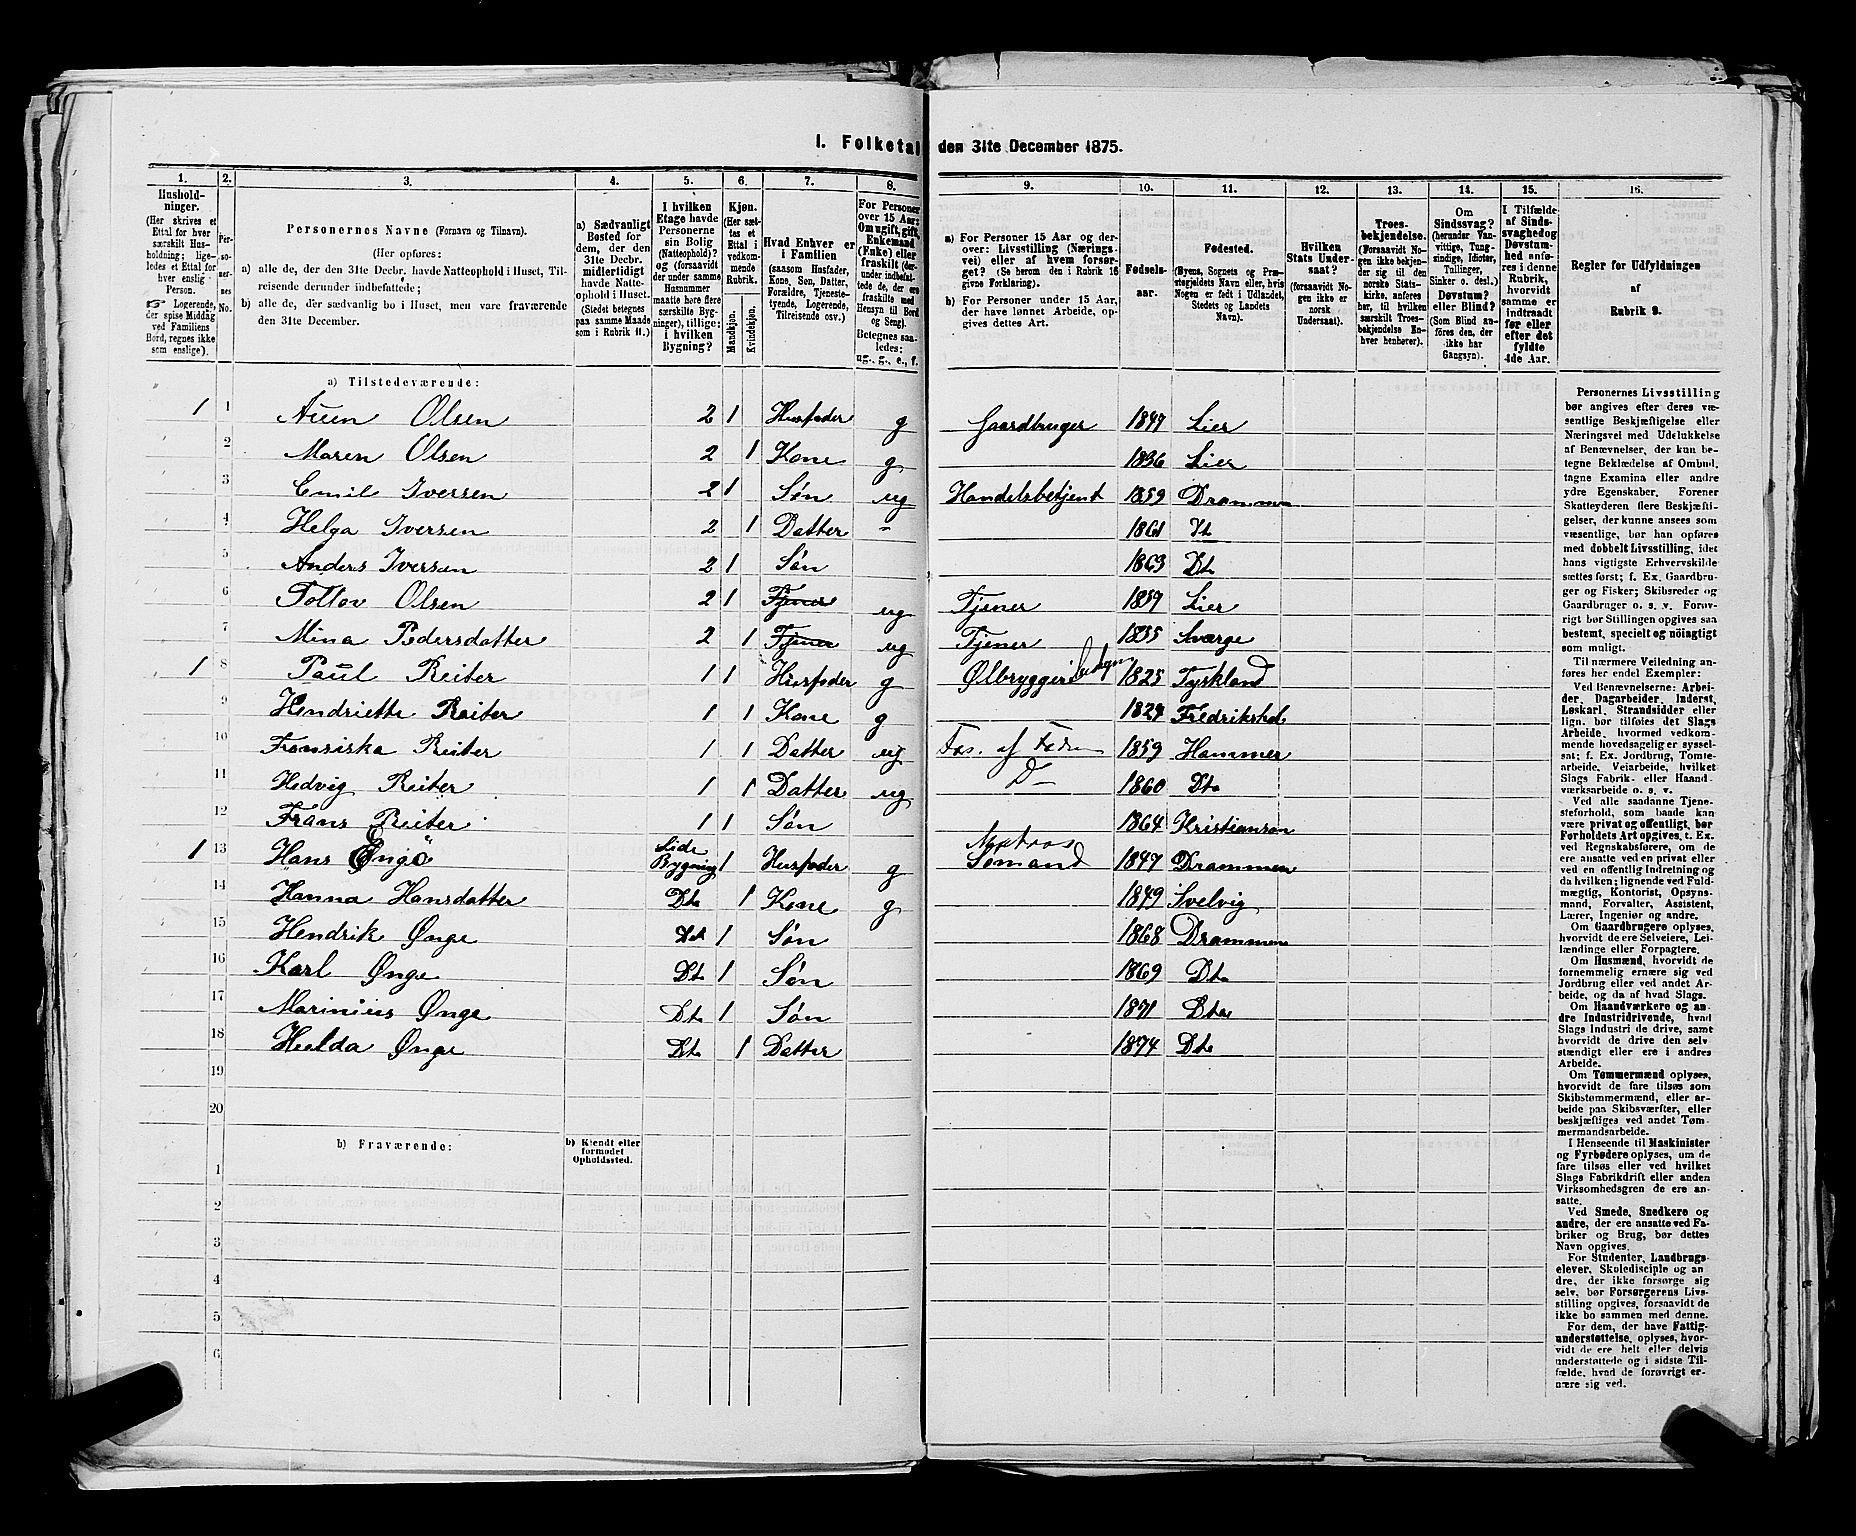 I. Folketal den 31te December 1875.
1. 2. 3. 4. 5. 6. 7. 8. 9. 10. 11. 12. 13. 14. 15. 16.
Hushold-
ninger.
(Her skrives et
Ettal for hver
særskilt Hus-
holdning; lige-
ledes et Ettal for
hver enslig
Person.
☞ Logerende,
der spise Middag
ved Familiens
Bord, regnes ikke
som enslige).
Per-
so-
ner-
nes
No.
Personernes Navne (Fornavn og Tilnavn).
(Her opføres:
a) alle de, der den 31te Decbr. havde Natteophold i Huset, Til-
reisende derunder indbefattede;
b) alle de, der sædvanlig bo i Huset, men vare fraværende
den 31te December.
a) Sædvanligt
Bosted for
dem, der den
31te Decbr.
midlertidigt
havde Natte-
ophold i Huset.
(Stedet betegnes
paa samme Maade
som i Rubrik 11.)
I hvilken
Etage havde
Personerne
sin Bolig
(Natteophold)?
og (forsaavidt
der under samme
Husnummer
maatte høre flere
særskilte Byg-
ninger), tillige:
i hvilken
Bygning?
Kjøn.
(Her sæt-
tes et
Ettal i
vedkom-
mende
Rubrik.
Mandkjøn.
Kvindekjøn.
Hvad Enhver er
i Familien
(saasom Husfader,
Kone, Søn, Datter,
Forældre, Tjeneste-
tyende, Logerende,
Tilreisende osv.)
For Personer
over 15 Aar:
Om ugift, gift,
Enkemand
(Enke) eller
fraskilt (der-
under indbefat-
tede de, der ere
fraskilte med
Hensyn til Bord
og Seng).
Betegnes saa-
ledes:
ug., g., e., f.
a) For Personer 15 Aar og der-
over: Livsstilling (Nærings-
vei) eller af hvem forsør-
get? (Se herom den i Rubrik 16
givne Forklaring).
b) For Personer under 15 Aar,
der have lønnet Arbeide, op-
gives dettes Art.
Fødsels-
aar.
Fødested.
(Byens, Sognets og Præ-
stegjeldets Navn eller, hvis
Nogen er født i Udlandet,
Stedets og Landets
Navn).
Hvilken
Stats Under-
saat?
(forsaavidt No-
gen ikke er
norsk
Undersaat).
Troes-
bekjendelse.
(Forsaavidt No-
gen ikke bekjen-
der sig til den
norske Stats-
kirke, anføres
her, til hvilken
særskilt Troes-
bekjendelse En-
hver henhører).
Om
Sindssvag?
(herunder Van-
vittige, Tung-
sindige, Idioter,
Tullinger,
Sinker o. desl.)
Døvstum?
eller Blind?
(Som Blind an-
føres den, der
ikke har
Gangsyn).
I Tilfælde
af Sinds-
svaghed og
Døvstum-
hed anfø-
res i denne
Rubrik,
hvorvidt
samme er
indtraadt
før eller
efter det
fyldte
4de Aar.
Regler for Udfyldningen
af
Rubrik 9.
a) Tilstedeværende:
1 1 Olsen 2 1 Husfader g Gaardbruger Lier
2 Maren Olsen 2 1 Kone g 1836 Lier
3 Emil Iversen 2 1 Søn ug Handelsbetjent 1859 Drammen
4 Helga Iversen 2 1 Datter - 1861 Dt
5 Anders Iversen 2 1 Søn 1863 Dt
6 Olsen 2 1 Tjener ug Tjener 1859 Lier
7 Mina Pedersdatter 2 1 Tjener ug Tjener 1855 Sverge
1 8 Paul Reiter 1 1 Husfader g 1825 Tyskland
9 Hendriette Reiter 1 1 Kone g Fredrikshal
10 Fransiska Reiter 1 1 Datter ug Fors. af Faderen 1859 Hammer
11 Hedvig Reiter 1 1 Datter ug D- 1860 Dt
12 Frans Reiter 1 1 Søn 1864 Kristiansan
1 13 Hans Enge Side Bygning 1 Husfader g Sømand 1847 Drammen
14 Hanna Hansdatter Dt 1 Kone g 1849 Svelvig
15 Hendrik Ønge Dt 1 Søn 1868 Drammen
16 Karl Ønge Dt 1 Søn 1869 Dt
17 Marinius Ønge Dt 1 Søn 1871 Dt
18 Helda Ønge Dt 1 Datter 1874 Dt
19
20
b) Fraværende: b) Kjendt eller
formodet
Opholdssted.
1
2
3
4
5
6
Personernes Livsstilling
bør angives efter deres væ-
sentlige Beskjæftigelse eller
Næringsvei med Udelukkelse
af Benævnelser, der kun be-
tegne Beklædelse af Ombud,
tagne Examina eller andre
ydre Egenskaber. Forener
Skatteyderen flere Beskjæfti-
gelser, der kunne ansees som
væsentlige, bør han opføres
med dobbelt Livsstilling, idet
hans vigtigste Erhvervskilde
sættes først; f. Ex. Gaardbru-
ger og Fisker; Skibsreder og
Gaardbruger o. s. v. Forøv-
rigt bør Stillingen opgives saa
bestemt, specielt og nøiagtigt
som muligt.
Til nærmere Veiledning an-
føres her endel Exempler:
Ved Benævnelserne: Arbei-
der, Dagarbeider, Inderst,
Løskarl, Strandsidder eller
lign. bør tilføies det Slags
Arbeide, hvormed vedkom-
mende hovedsagelig er syssel-
sat; f. Ex. Jordbrug, Tomte-
arbeide, Veiarbeide, hvilket
Slags Fabrik- eller Haand-
værksarbeide o. s. v.
Ved alle saadanne Tjene-
steforhold, som baade kan
være privat og offentligt, bør
Forholdets Art opgives, t. Ex.
ved Regnskabsførere, om de
ere ansatte ved en privat eller
ved en offentlig Indretning og
da hvilken; lignende ved Fuld-
mægtig, Kontorist, Opsyns-
mand, Forvalter, Assistent,
Lærer, Ingeniør og andre.
Om Gaardbrugere oplyses,
hvorvidt de ere Selveiere, Lei-
lændinge eller Forpagtere.
Om Husmænd, hvorvidt de
fornemmelig ernære sig ved
Jordbrug eller ved andet Ar-
beide, og da af hvad Slags.
Om Haandværkere og an-
dre Industridrivende, hvad
Slags Industri de drive, samt
hvorvidt de drive den selv-
stændigt eller ere i andres
Arbeide.
Om Tømmermænd oplyses,
hvorvidt de fare tilsøs som
Skibstømmermænd, eller ar-
beide paa Skibsværfter, eller
beskjæftiges ved andet Tøm-
mermandsarbeide.
I Henseende til Maskinister
og Fyrbødere oplyses, om de
fare tilsøs eller ved hvilket
Slags Fabrikdrift eller anden
Virksomhedsgren de ere an-
satte.
Ved Smede, Snedkere og
andre, der ere ansatte ved Fa-
briker og Brug, bør dettes
Navn opgives.
For Studenter, Landbrugs-
elever, Skoledisciple og an
dre, der ikke forsørge sig
selv, bør Forsørgerens Livs-
stilling opgives, forsaavidt de
ikke bo sammen med denne.
For dem, der have Fattig-
understøttelse, oplyses, hvor-
vidt de ere helt eller delvis
understøttede og i sidste Til-
fælde, hvad de forøvrigt er-
nære sig ved.